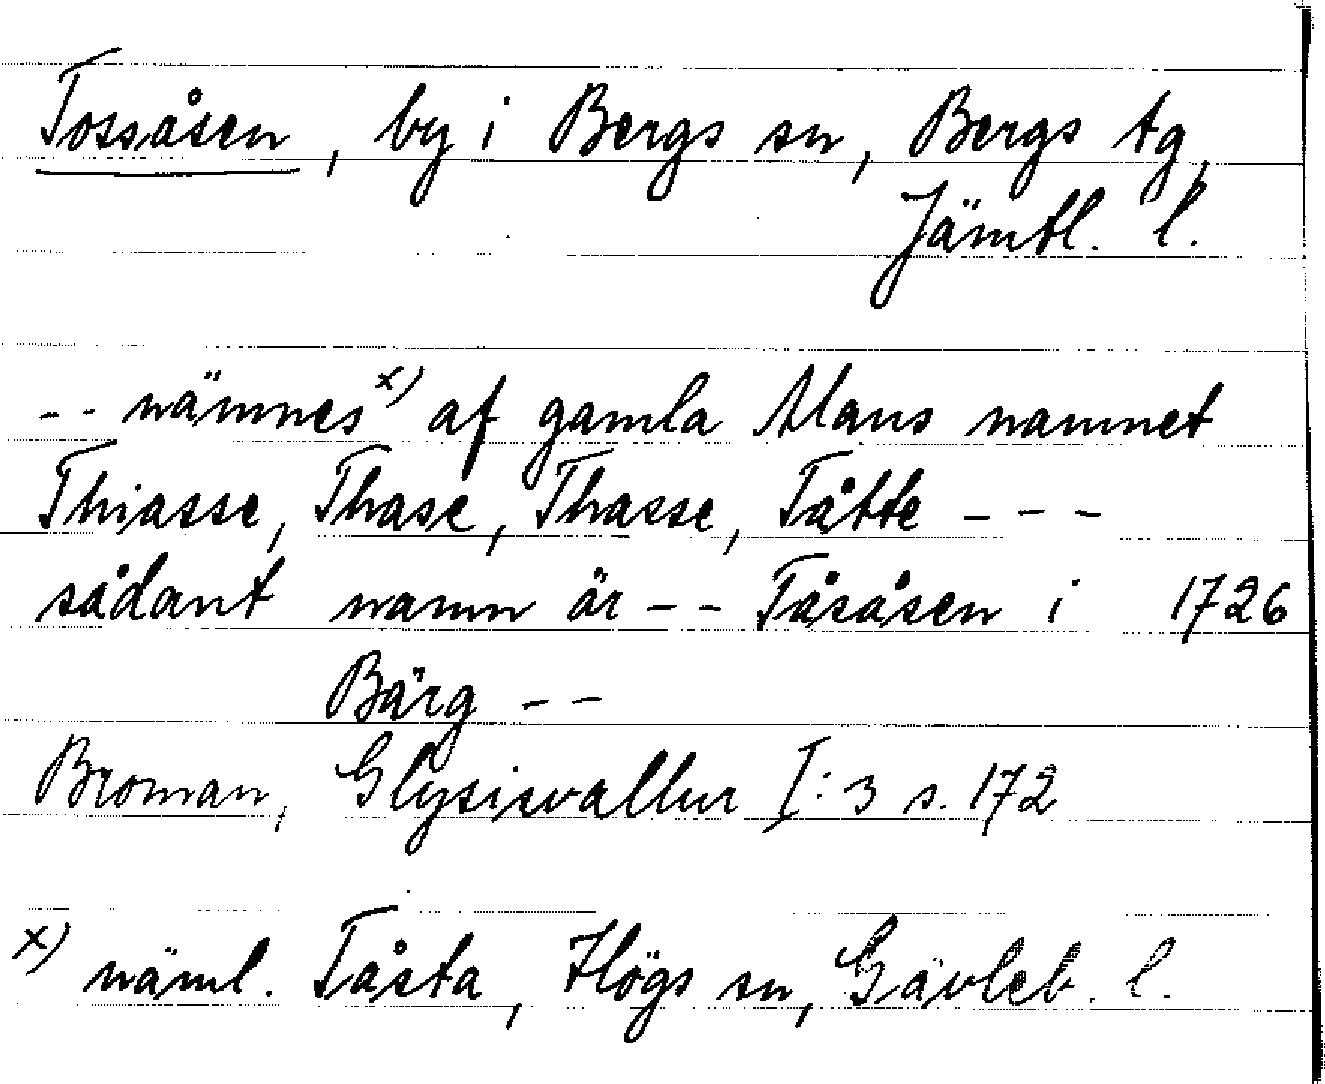 Tossåsen, by i Bergs sn, Bergs tg,
Jämtl. l.
-- nämnes x) af gamla Mans namnet
Thiasse, Thase, Thasse, Tåtte ---
sådant namn är -- Tåsåsen i 1726
Bärg --
Broman, Glysisvallur I:3 s. 172
x) näml. Tåsta, Högs sn, Gävleb. l.